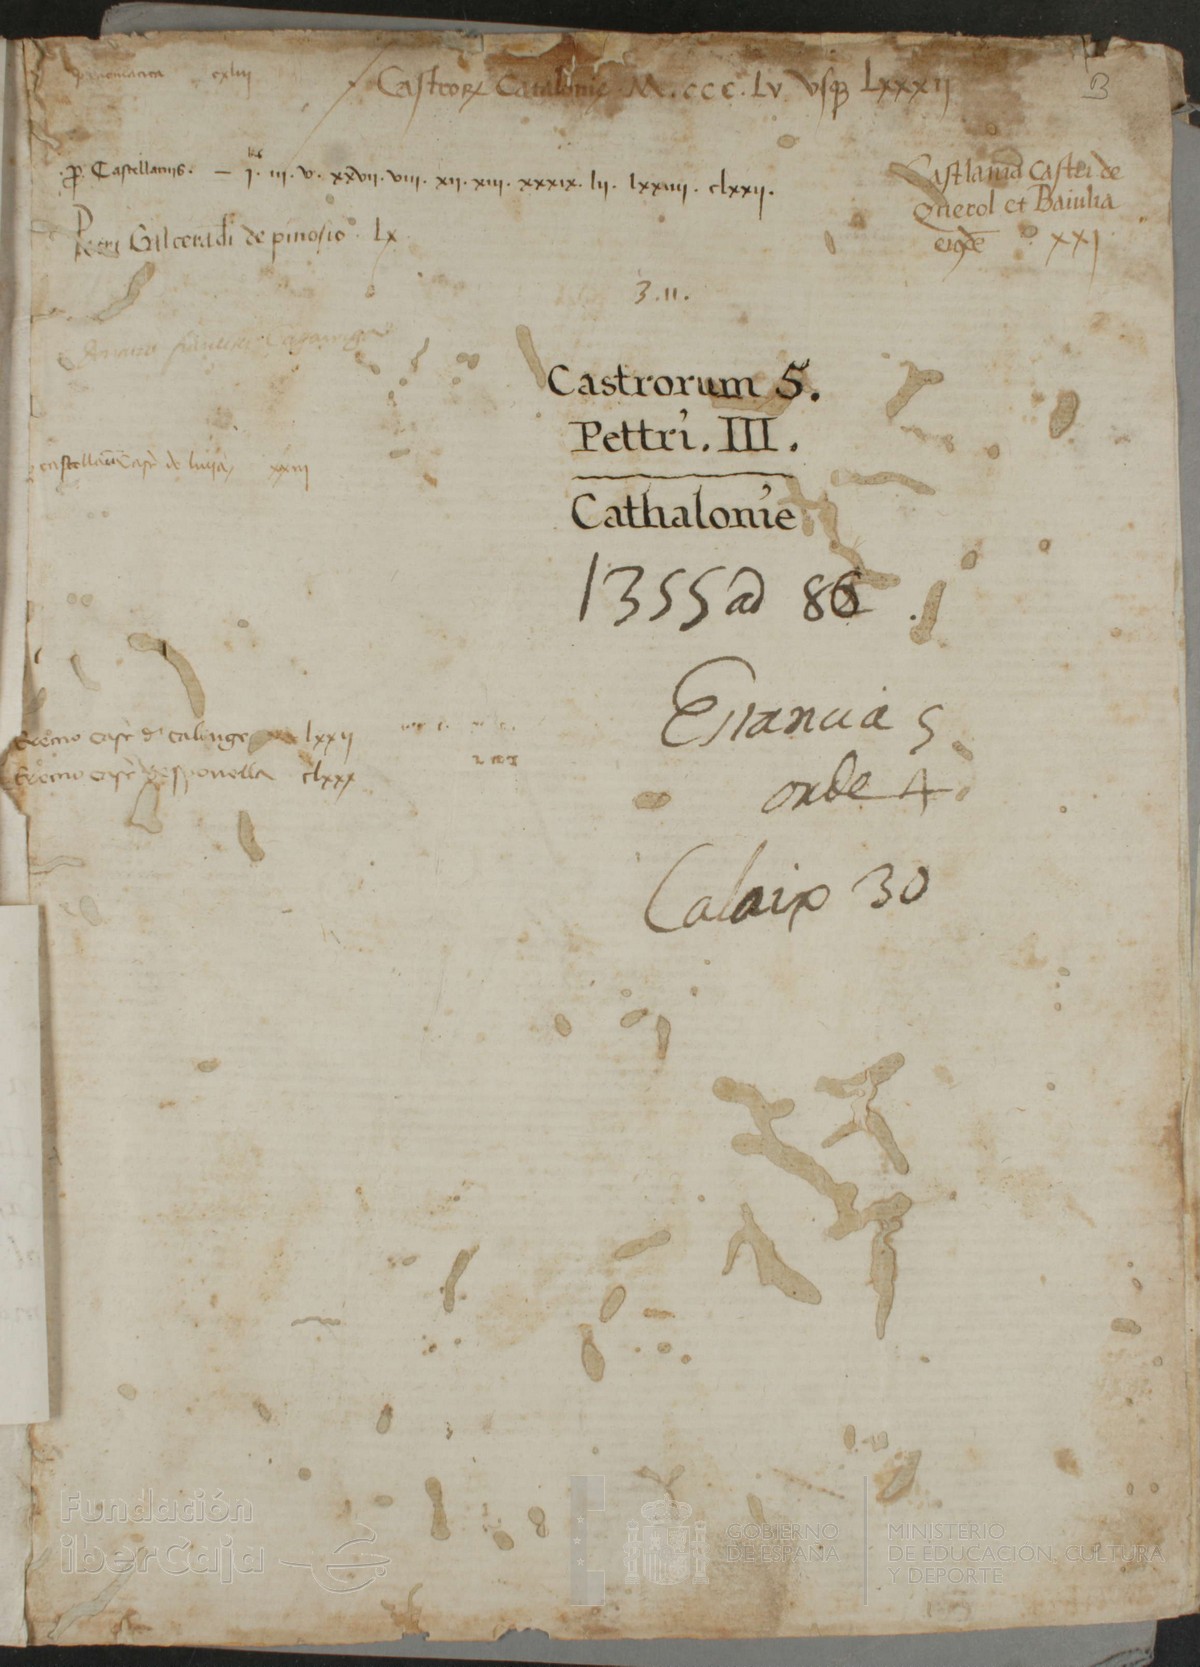 cxliii
Castrorꝝ Catalonie M.CCC.LV usqꝫ Lxxxii
3
.ꝓ. Castellanis. — I. iii. v. xxvii. viii. xii. xiii. xxxix. lii. lxxiiii. clxxii.
Castlania Castri de
Querol et Baiulia
eiqde xxi
Petri Galcerādi de pinosio. Lx
3.11.
Castrorum 5.
Pettri. III.
Cathalonie
1355 ad 86.
castellan de xxiii
Estancia 5
orde 4
Calaix 30
cast d calonge lxxii
cast clxxx
Fundación
iberCaja
GOBIERNO
DE ESPAÑA
MINISTERIO
DE EDUCACIÓN, CULTURA
Y DEPORTE